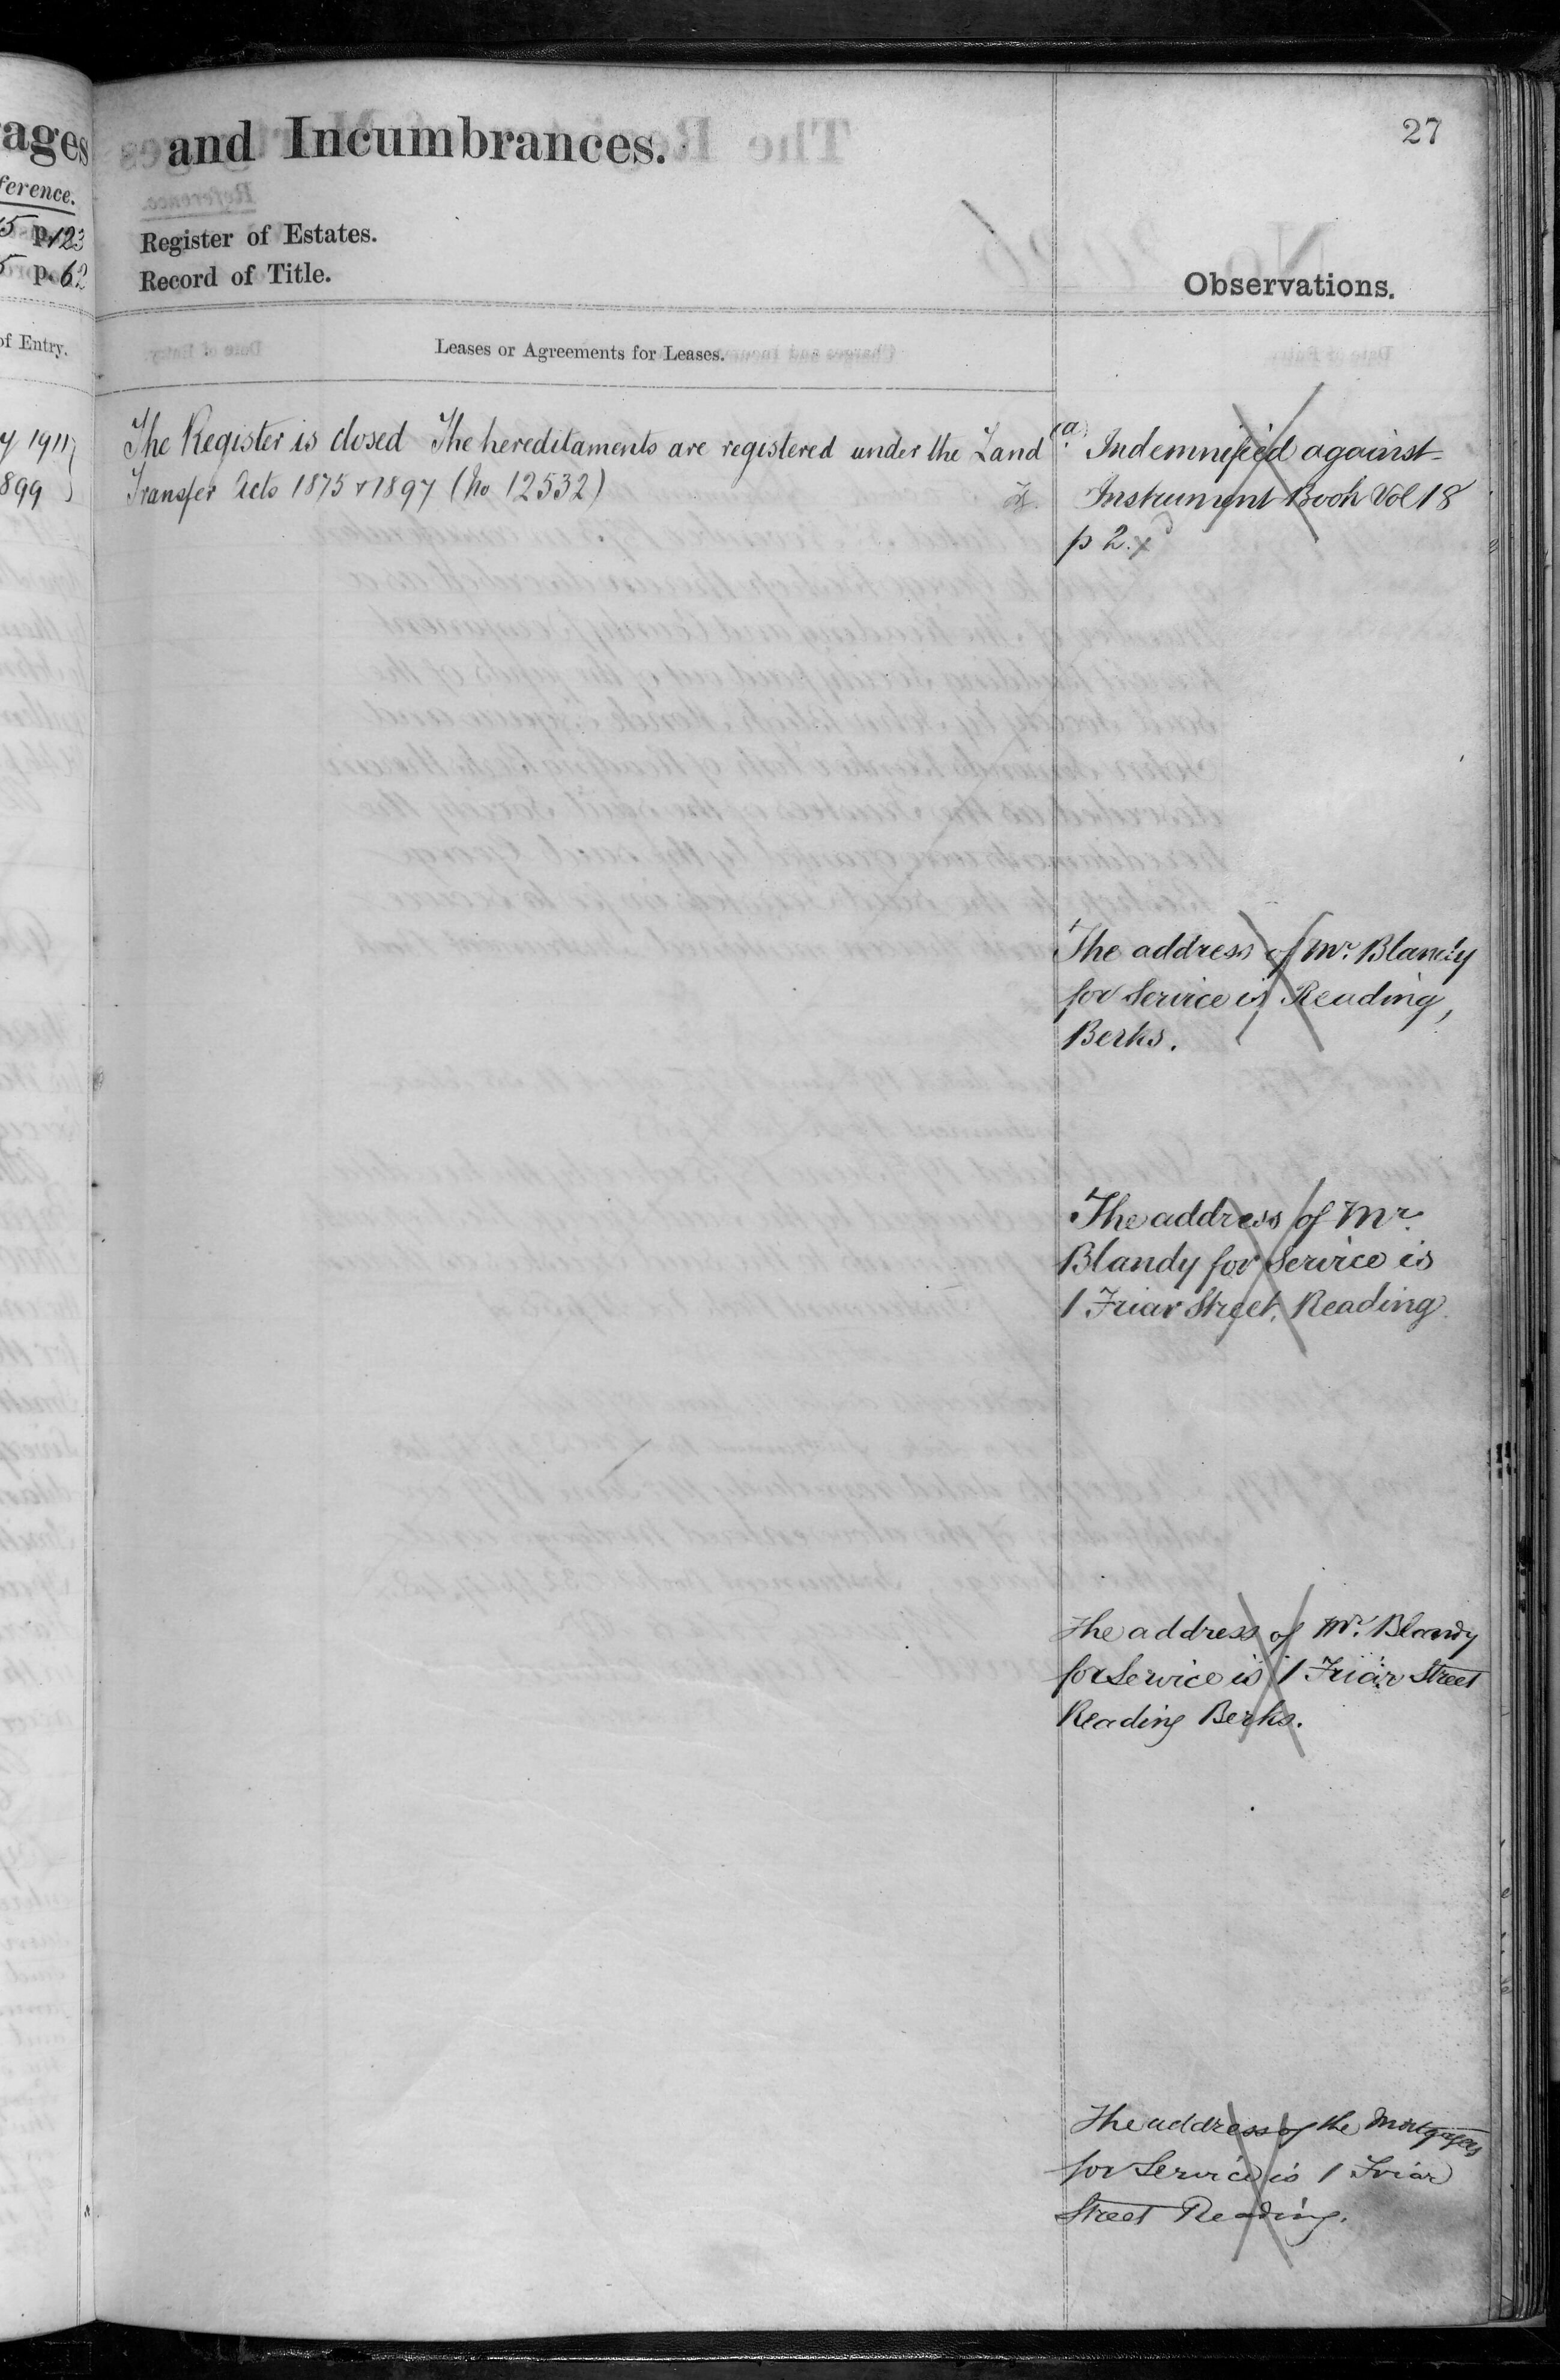 27
ages and Incumbrances.
ference.
p. 123 Register of Estates.
p. 62 Record of Title.
Observations.
of Entry.
Leases or Agreements for Leases.
y 1911
The Register is closed The hereditaments are registered under the Land
899
Transfer Acts 1875 & 1897 (No 12532)
(a) Indemnified against
Instrument Book Vol 18
p 2.
The address of Mr. Blandy
for Service is Reading,
Berks.
The address of Mr.
Blandy for Service is
1 Friar Street, Reading.
The address of Mr. Blandy
for Service is 1 Friar Street
Reading Berks.
The address of the Mortgagees
for Service is 1 Friar
Street Reading.